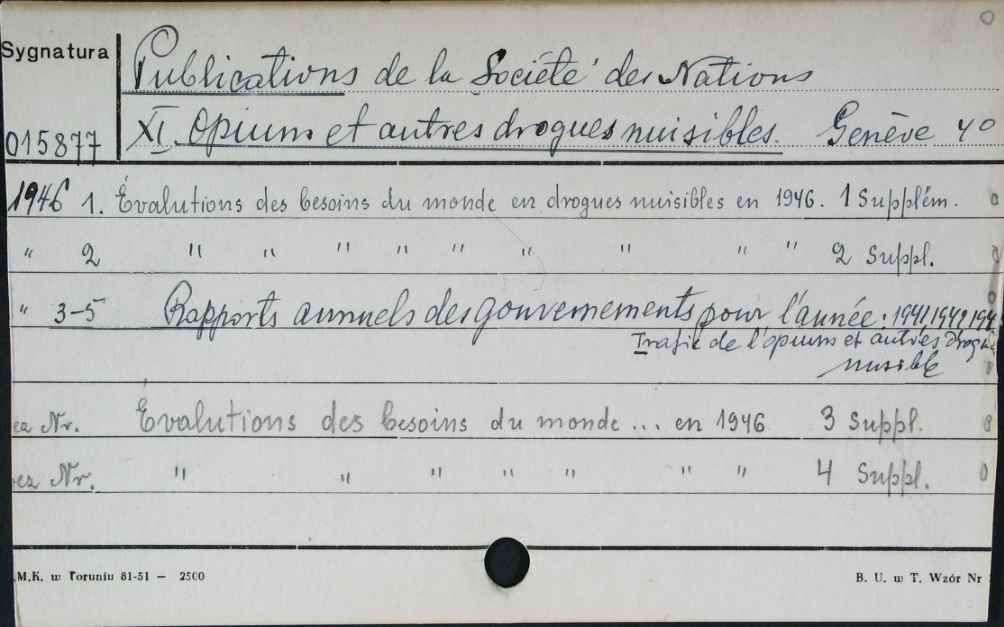 Sygnatura
Publications de la Société des Nations
015877
XI. Opium et autres drogues nuisibles. Genève 4°
1946 1. Évalutions des besoins du monde en drogues nuisibles en 1946. 1 Supplém.
" 2 " " " " " " " " " 2 Suppl.
" 3-5 Rapports annuels des gouvernements pour l'année: 1941, 1942, 194
Trafic de l'opium et autres drogue
nuisible
ez Nr. Évalutions des besoins du monde... en 1946 3 Suppl.
ez Nr. " " " " " " " 4 Suppl.
M.K. w Toruniu 81-51 — 2500
B. U. w T. Wzór Nr